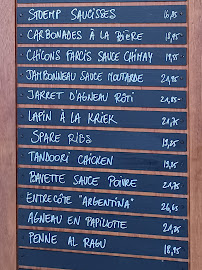 STOEMP SAUCISSES 16,95
CARBONADES À LA BIÈRE 18,95
CHICONS FARCIS SAUCE CHIMAY 19,95
JAMBONNEAU SAUCE MOUTARDE 21,95
JARRET D'AGNEAU RÔTI 21,95
LAPIN À LA KRIEK 21,75
SPARE RIBS 19,95
TANDOORI CHICKEN 19,95
BAVETTE SAUCE POIVRE 21,75
ENTRECÔTE "ARGENTINA" 26,65
AGNEAU EN PAPILOTTE 21,95
PENNE AL RAGU 18,95